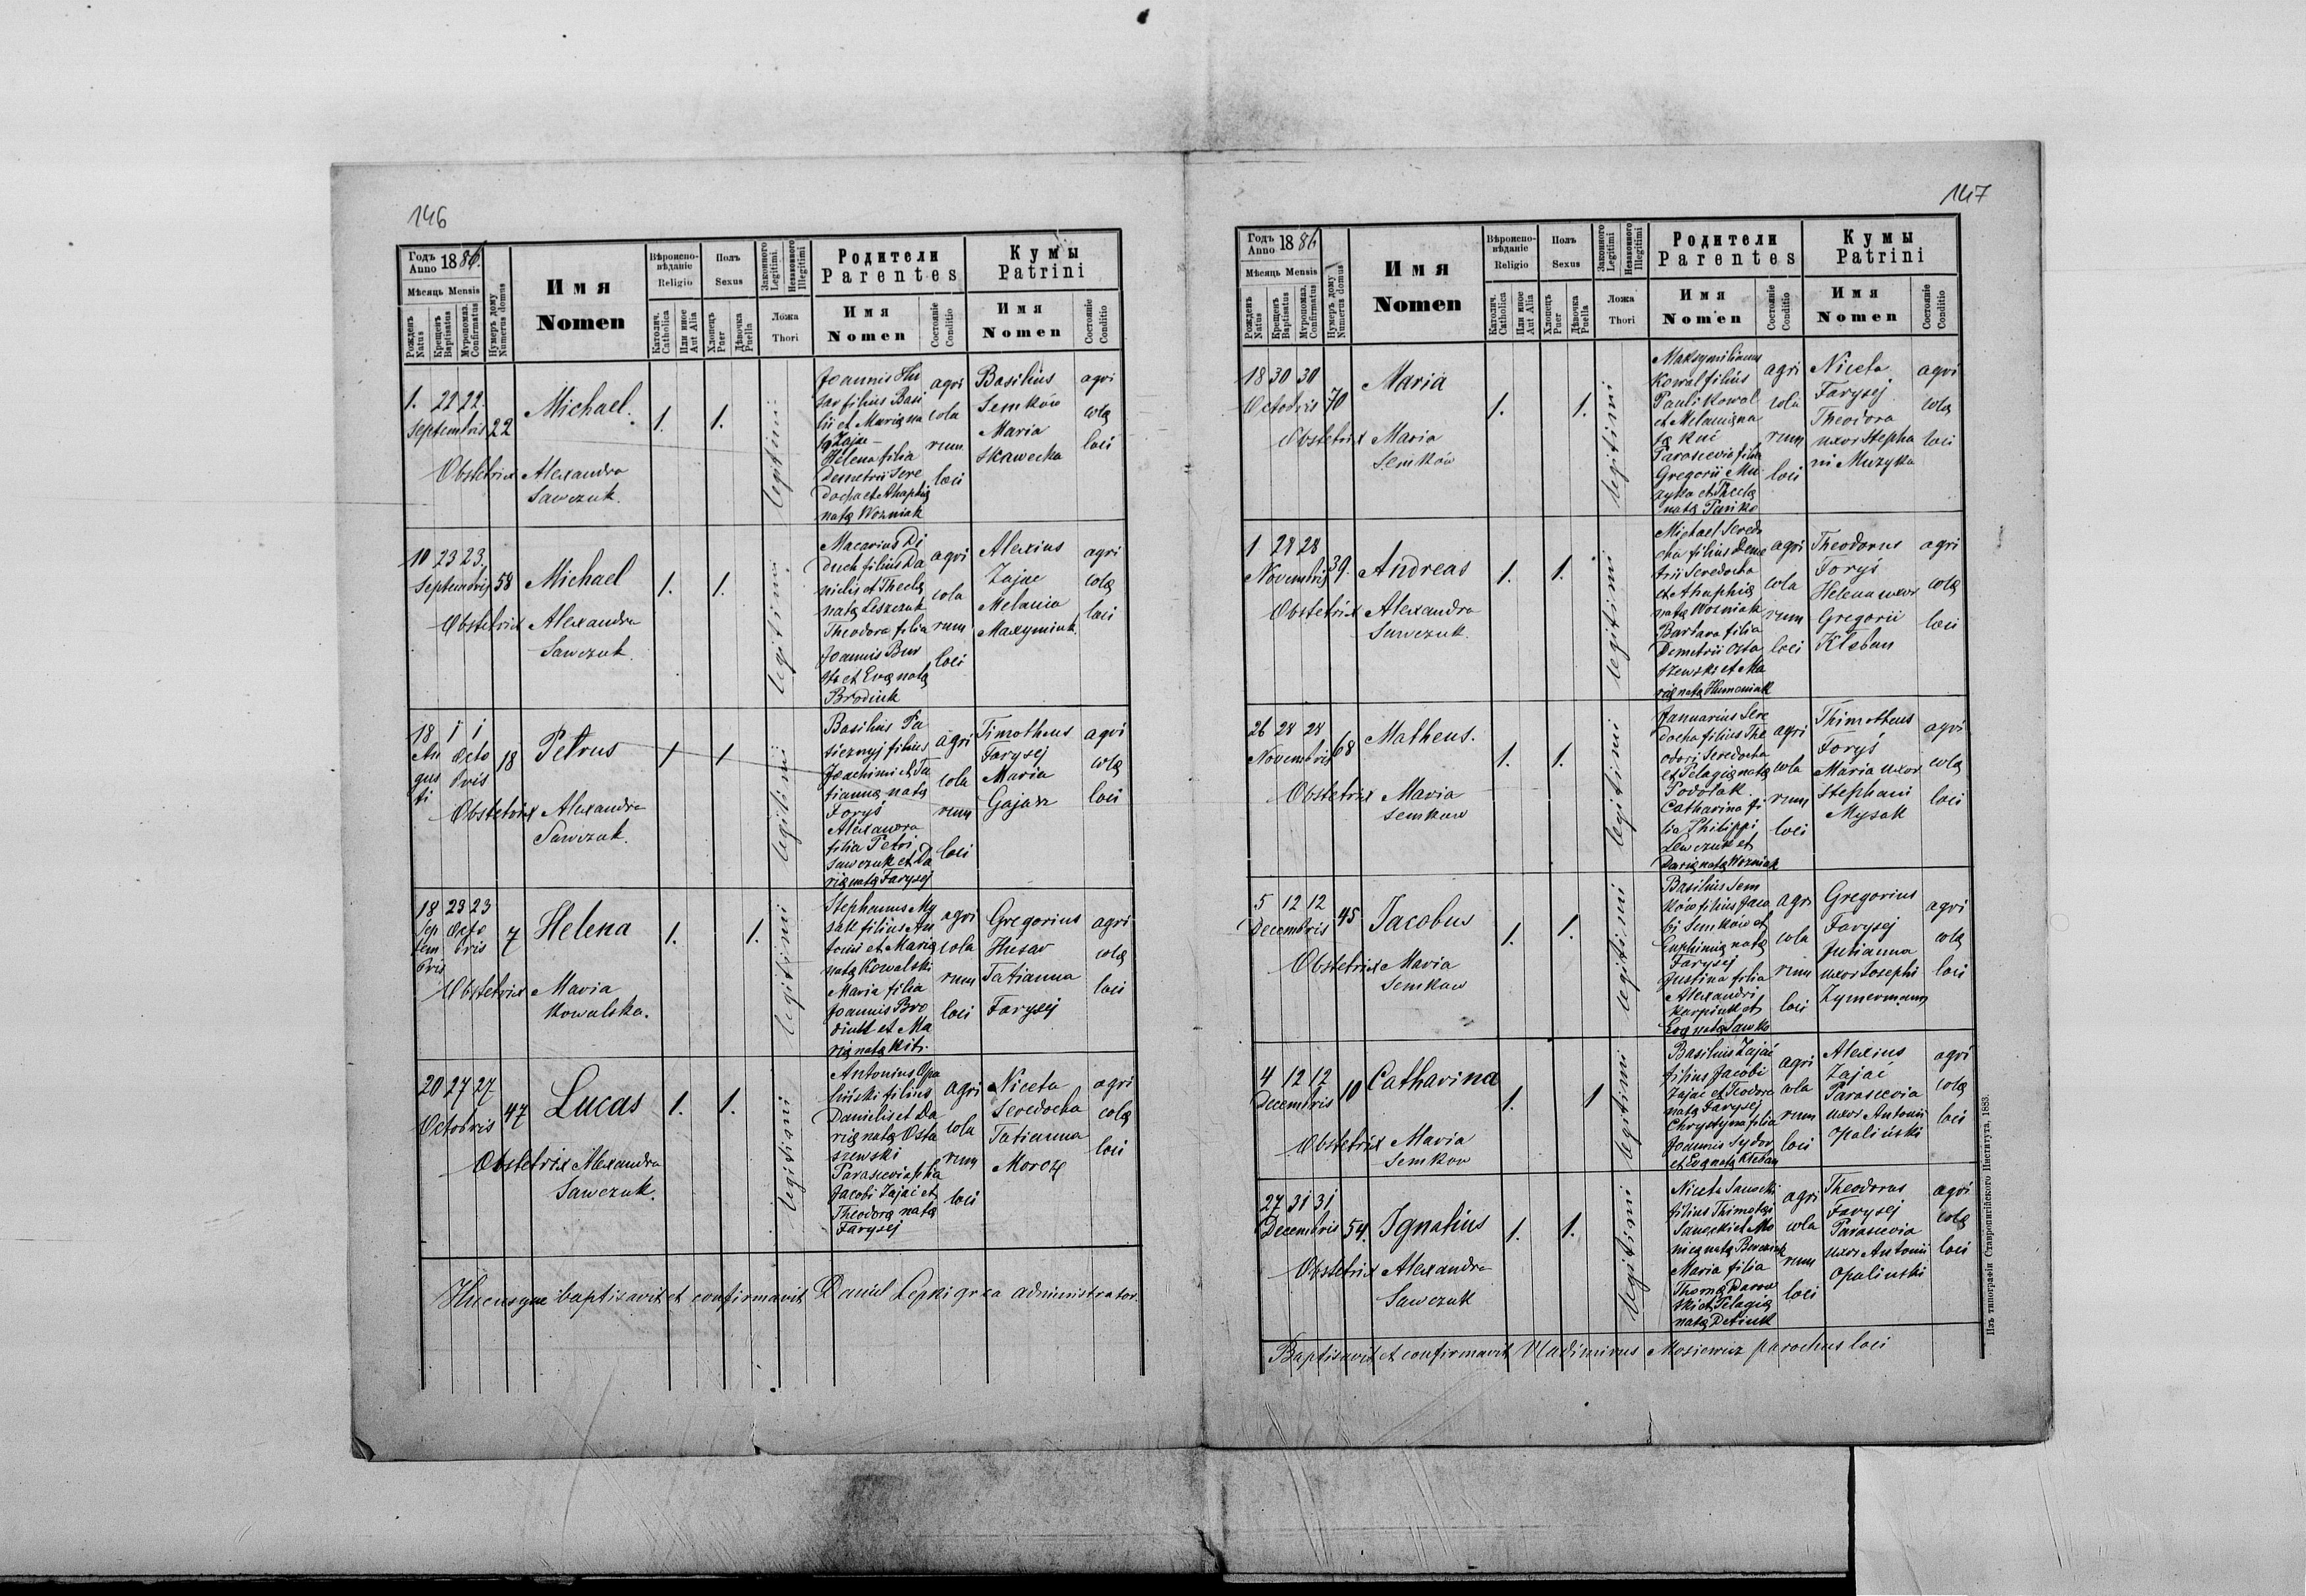 146
Годъ
Anno 1886.
Мѣсяцъ Mensis
Рожденъ
Natus
Крещенъ
Baptisatus
Муропомаз.
Confirmatus
Нумеръ дому
Numerus domus
Имя
Nomen
Вѣроиспо-
вѣданіе
Religio
Католич.
Catholica
Или иное
Aut Alia
Полъ
Sexus
Хлопецъ
Puer
Дѣвочка
Puella
Законного
Legitimi.
Незаконного
Illegitimi
Ложа
Thori
Родители
Parentes
Имя
Nomen
Состояніе
Conditio
Кумы
Patrini
Имя
Nomen
Состояніе
Conditio
1. 22 22
Septembris 22
Michael.
1. 1.
legitimi
Joannis Hu
sar filius Basi
lii et Maria na
ta Zajac
Helena filia
Demetrii Sere
docha et Ahaphia
nata Wozniak
agri
cola
rum
loci
Basilius
Semków
Maria
Skawecka
agri
cola
loci
Obstetrix Alexandra
Sawczuk.
10 23 23.
Septembris 58
Michael
1. 1.
legitimi
Macarius Di
duch filius Da
nielis et Thecla
nata Leszczuk
Theodora filia
Joannis Bur
et Eva nata
Brodiuk
agri
cola
rum
loci
Alexius
Zajac
Melania
Maxymiuk.
agri
cola
loci
Obstetrix Alexandra
Sawczuk.
18 1 1
Au Octo
gus bris
ti
18
Petrus
1 1
legitimi
Basilius Pa
tiecznyj filius
Joachimi et Ta
tianna nata
Foryś
Alexandra
filia Petri
Sawczuk et Da
ria nata Farysej
agri
cola
rum
loci
Timotheus
Farysej
Maria
Gajasz
agri
cola
loci
Obstetrix Alexandra
Sawczuk.
18 23 23
Sep Octo
tem bris
bris
7
Helena
1. 1.
legitimi
Stephanus My
sak filius An
tonii et Maria
nata Kowalski
Maria filia
Joannis Bro
diuk et Ma
ria nata Kit.
agri
cola
rum
loci
Gregorius
Husar
Tatianna
Farysej
agri
cola
loci
Obstetrix Maria
Kowalska.
20 27 27
Octobris 47
Lucas
1. 1.
legitimi
Antonius Opa
liński filius
Danielis et Da
ria nata Osta
szewski
Parascevia filia
Jacobi Zajać et
Theodora nata
Farysej
agri
cola
rum
loci
Niceta
Seredocha
Tatianna
Moroz
agri
cola
loci
Obstetrix Alexandra
Sawczuk.
Hucusque baptisavit et confirmavit Daniel Lepki gr ca administrator.
147
Годъ
Anno 1886
Мѣсяцъ Mensis
Рожденъ
Natus
Крещенъ
Baptisatus
Муропомаз.
Confirmatus
Нумеръ дому
Numerus domus
Имя
Nomen
Вѣроиспо-
вѣданіе
Religio
Католич.
Catholica
Или иное
Aut Alia
Полъ
Sexus
Хлопецъ
Puer
Дѣвочка
Puella
Законного
Legitimi
Незаконного
Illegitimi
Ложа
Thori
Родители
Parentes
Имя
Nomen
Состояніе
Conditio
Кумы
Patrini
Имя
Nomen
Состояніе
Conditio
18 30 30
Octobris 70
Maria
1. 1.
legitimi
Maksymilianus
Kowal filius
Pauli Kowal
et Melania na
ta Kuć
Parascevia filia
Gregorii Mu
zyka et Thecla
nata Pańko
agri
cola
rum
loci
Niceta
Farysej
Theodora
uxor Stepha
ni Muzyka
agri
cola
loci
Obstetrix Maria
Semków
1 28 28
Novembris 39.
Andreas
1. 1.
legitimi
Michael Seredo
cha filius Deme
trii Seredocha
et Ahaphia
nata Wozniak
Barbara filia
Demetrii Osta
szewski et Ma
ria nata Humeniuk
agri
cola
rum
loci
Theodorus
Foryś
Helena uxor
Gregorii
Kleban
agri
cola
loci
Obstetrix Alexandra
Sawczuk.
26 28 28
Novembris 68
Matheus.
1. 1.
legitimi
Januarius Sere
docha filius The
odori Seredocha
et Pelagia nata
Podolak.
Catharina fi
lia Philippi
Lewczuk et
Daria nata Wozniak
agri
cola
rum
loci
Thimotheus
Foryś
Maria uxor
Stephani
Mysak
agri
cola
loci
Obstetrix Maria
Semkow
5 12 12
Decembris 45
Jacobus
1. 1.
legitimi
Basilius Sem
ków filius Jaco
bi Semków et
Euphimia nata
Farysej
Justina filia
Alexandri
Karpiuk et
Eva nata Sawko
agri
cola
rum
loci
Gregorius
Farysej
Julianna
uxor Josephi
Zymermann
agri
cola
loci
Obstetrix Maria
Semkow
4 12 12
Decembris 10
Catharina
1. 1
legitimi
Basilius Zajać
filius Jacobi
Zajac et Teodora
nata Farysej
Chrystyna filia
Joannis Sydor
et Eva nata Kleban
agri
cola
rum
loci
Alexius
Zajać
Parascevia
uxor Antonii
Opaliński
agri
cola
loci
Obstetrix Maria
Semkow
27 31 31
Decembris 54.
Ignatius
1. 1.
legitimi
Niceta Sanocki
filius Thimotei
Sanocki et Mo
nica nata
Maria filia
Thoma Darow
ski et Pelagia
nata Detiuk
agri
cola
rum
loci
Theodorus
Farysej
Parascevia
uxor Antonii
Opaliński
agri
cola
loci
Obstetrix Alexandra
Sawczuk
Baptisavit et confirmavit Vladimirus Mosiewicz parochus loci
Изъ типографіи Ставропигійского Института, 1883.